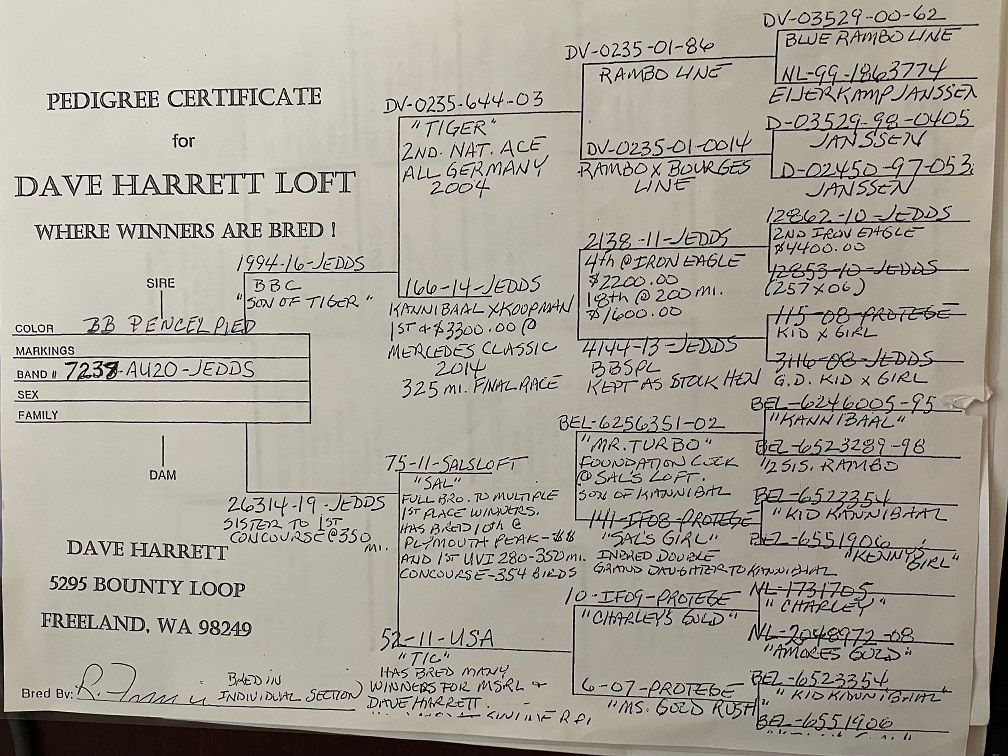 PEDIGREE CERTIFICATE
for
DAVE HARRETT LOFT
WHERE WINNERS ARE BRED !
SIRE
COLOR BB PENCEL PIED
MARKINGS
BAND # 7237-AU20-JEDDS
SEX
FAMILY
DAM
DAVE HARRETT
5295 BOUNTY LOOP
FREELAND, WA 98249
Bred By:
BRED IN
INDIVIDUAL SECTION
1994-16-JEDDS
BBC
"SON OF TIGER"
26314-19-JEDDS
SISTER TO 1ST
CONCOURSE @ 350
MI.
DV-0235-644-03
"TIGER"
2ND. NAT. ACE
ALL GERMANY
2004
166-14-JEDDS
KANNIBAAL X KOOPMAN
1ST & $3300.00 @
MERCEDES CLASSIC
2014
325 MI. FINAL RACE
75-11-SALSLOFT
"SAL"
FULL BRO. TO MULTIPLE
1ST PLACE WINNERS.
HAS BRED 10th @
PLYMOUTH PEAK-$$
AND 1ST UVI 280-350 MI.
CONCOURSE-354 BIRDS
52-11-USA
"TIC"
HAS BRED MANY
WINNERS FOR MSRL &
DAVE HARRETT.
DV-0235-01-86
RAMBO LINE
DV-0235-01-0014
RAMBO X BOURGES
LINE
2138-11-JEDDS
4th @ IRON EAGLE
$2200.00
18th @ 200 MI.
$1600.00
4144-13-JEDDS
BBSPL
KEPT AS STOCK HEN
BEL-6256351-02
"MR. TURBO"
FOUNDATION COCK
@ SAL'S LOFT.
SON OF KANNIBAL
141-IF08-PROTEGE
"SAL'S GIRL"
INBRED DOUBLE
GRAND DAUGHTER TO KANNIBAAL
10-IF09-PROTEGE
"CHARLEY'S GOLD"
6-07-PROTEGE
"MS. GOLD RUSH"
DV-03529-00-62
BLUE RAMBO LINE
NL-99-1863774
EIJERKAMP JANSSEN
D-03529-98-0405
JANSSEN
D-02450-97-053
JANSSEN
12862-10-JEDDS
2ND IRON EAGLE
$4400.00
12853-10-JEDDS
(257 X 06)
115-08-PROTEGE
KID X GIRL
3116-08-JEDDS
G.D. KID X GIRL
BEL-6246005-95
"KANNIBAAL"
BEL-6523289-98
RAMBO
BEL-6522354
"KID KANNIBAAL"
BEL-6551906
"KENNY GIRL"
NL-1731705
"CHARLEY"
NL-2048972-08
"AMORES GOLD"
BEL-6523354
"KID KANNIBAAL"
BEL-6551906